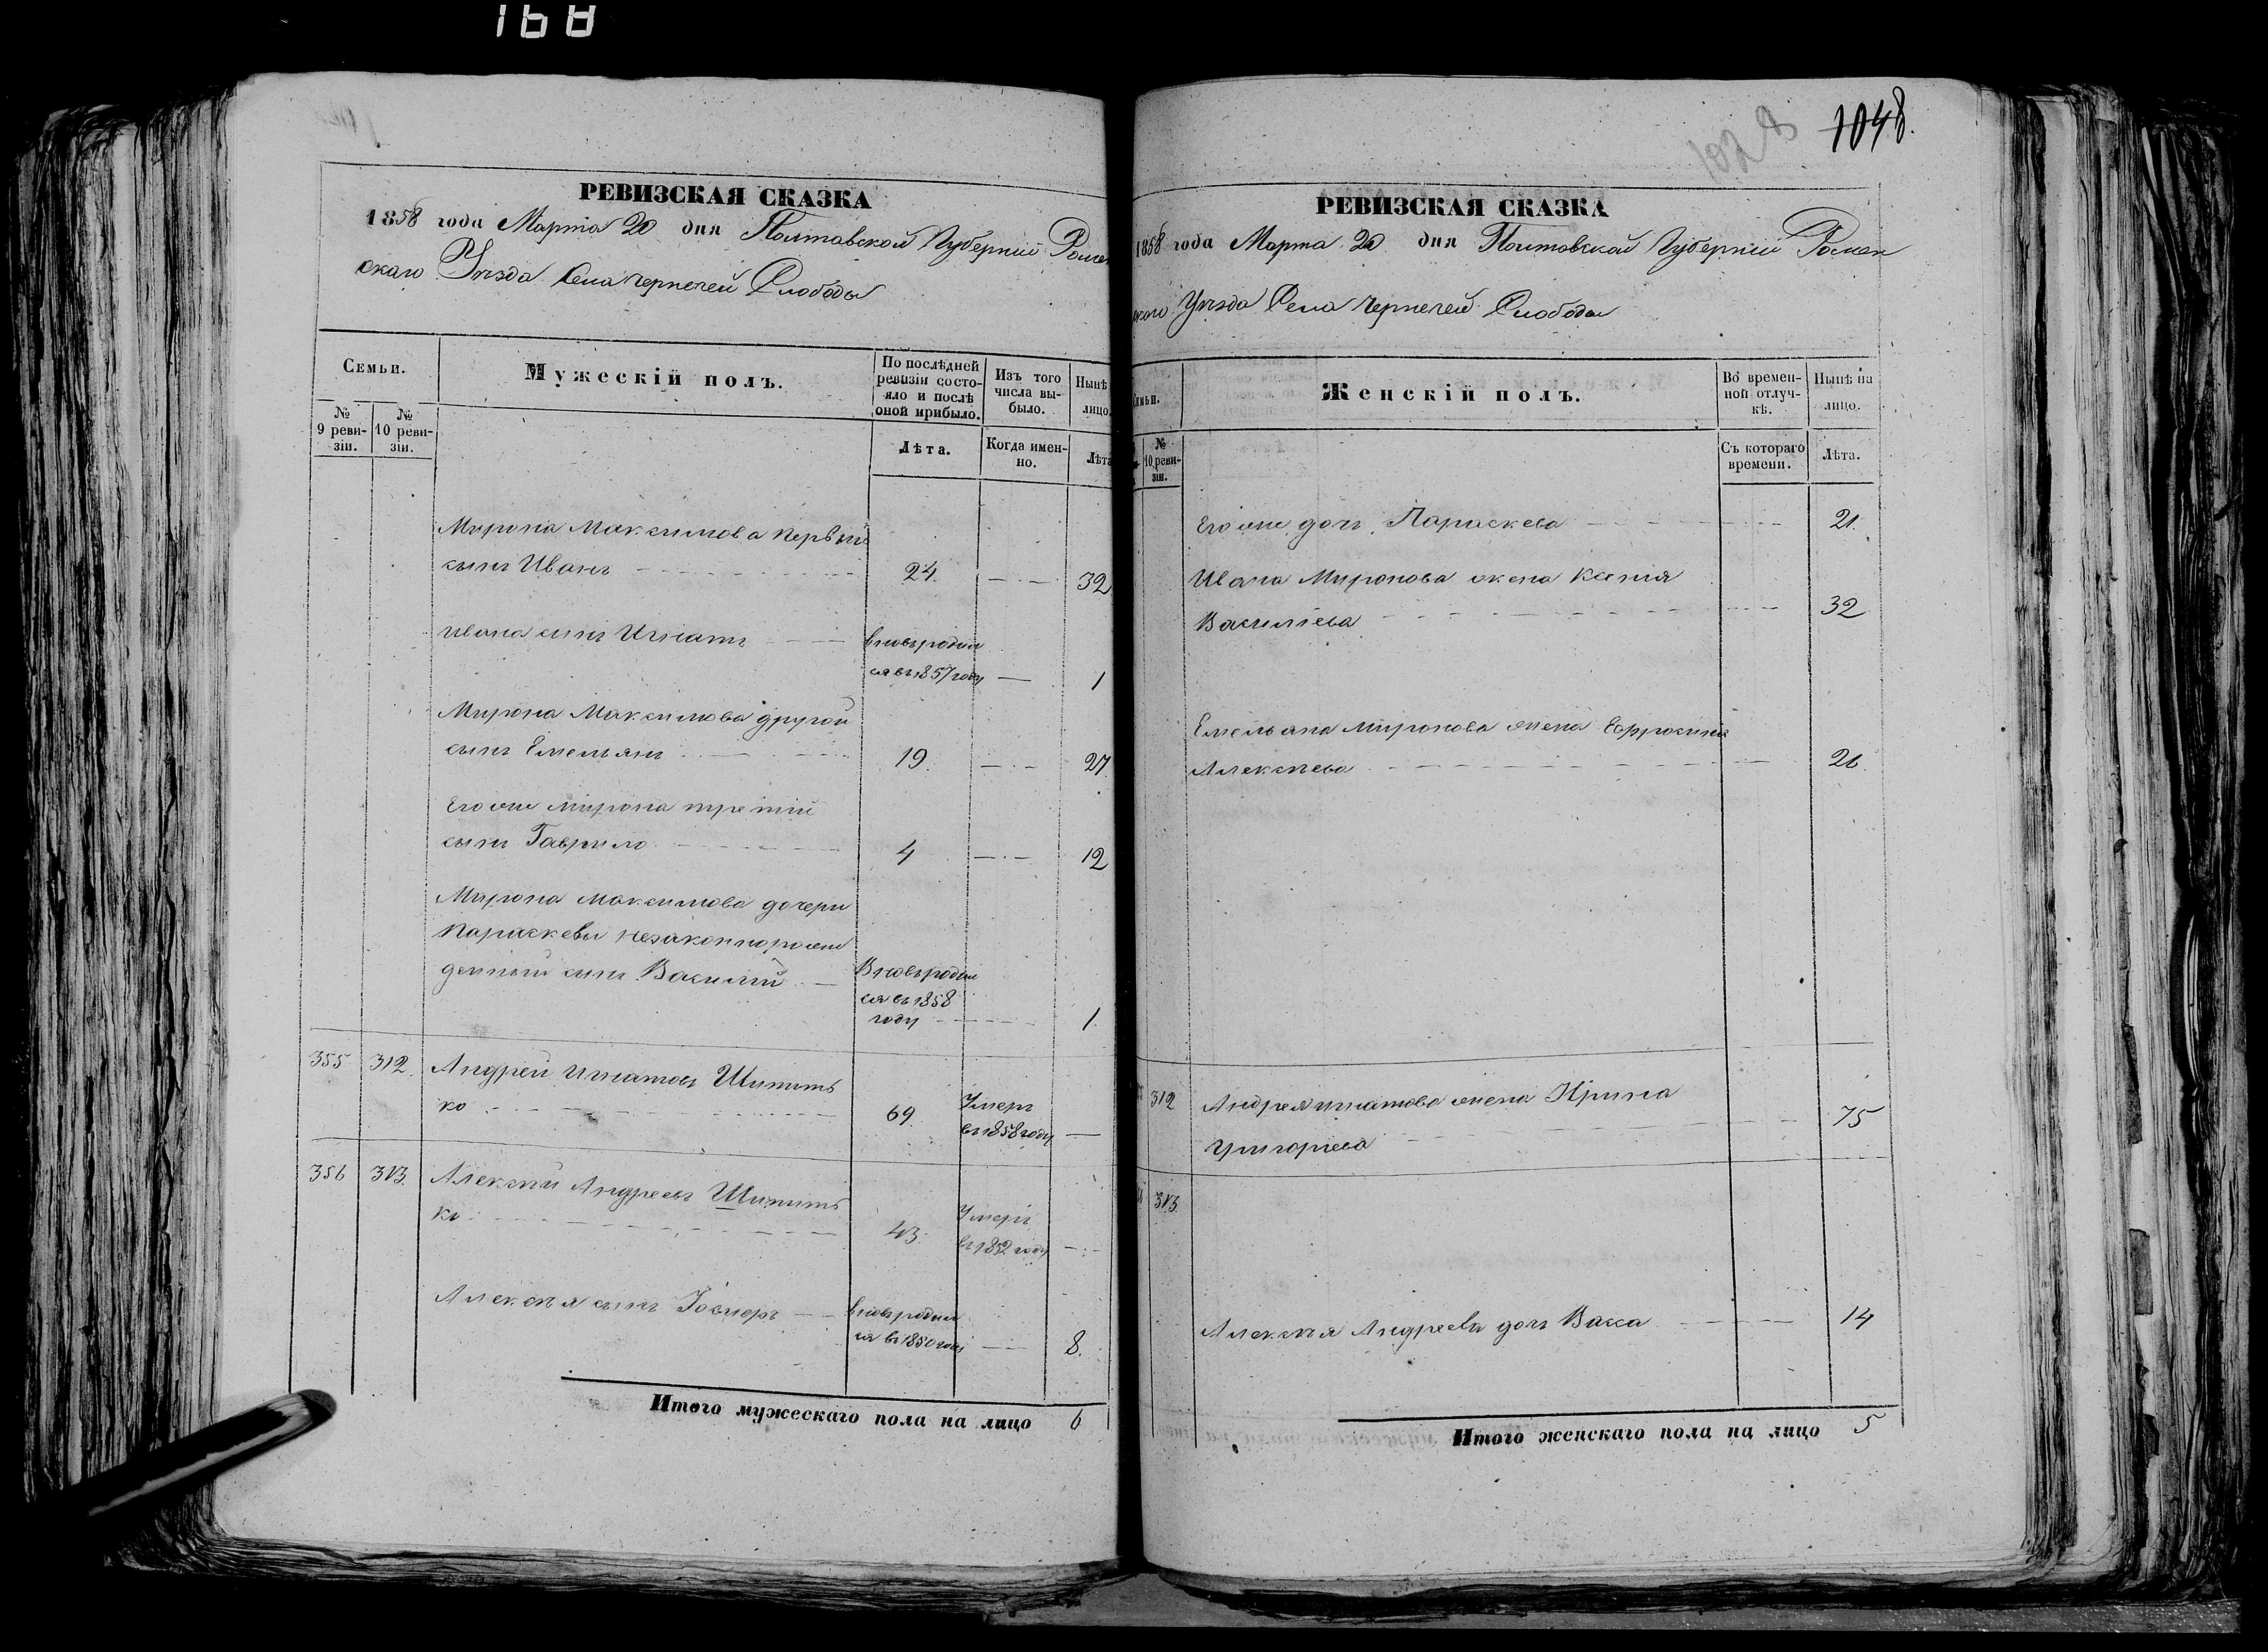 168
РЕВИЗСКАЯ СКАЗКА
1858 года Марта 20 дня Полтавской Губернии Ромен
скаго Уѣзда Села Чернечей Слободы
Семьи.
Мужескій полъ.
По послѣдней ревизіи состояло и послѣ оной прибыло.
Изъ того числа выбыло.
Нынѣ
лицо.
№ 9 ревизіи.
№ 10 ревизіи.
Лѣта.
Когда именно.
Лѣта
Мирона Максимова первый
сынъ Иванъ 24. 32
Ивана сынъ Игнатъ вновь родил
ся въ 1857 году 1
Мирона Максимова другой
сынъ Емельянъ 19. 27.
Его же Мирона третій
сынъ Гаврило 4 12
Мирона Максимова дочери
Параскевы незаконнорож
денный сынъ Василій Вновь родил
ся въ 1858
году 1.
355 312. Андрей Игнатовъ Шипить
ко 69. Умеръ
въ 1858 году
356 313. Алексѣй Андреевъ Шипить
ко 43. Умеръ
въ 1852 году
Алексѣя сынъ вновь родил
ся въ 1850 году 8.
Итого мужескаго пола на лицо 6
1028
1048.
РЕВИЗСКАЯ СКАЗКА
1858 года Марта 20 дня Полтавской Губерніи Ромен
скаго Уѣзда Села Чернечей Слободы
Семьи.
Женскій полъ.
Во временной отлучкѣ.
Нынѣ на лицо.
№ 10 ревизіи.
Съ котораго времени.
Лѣта.
Его же дочь Параскева 21.
Ивана Миронова жена Ксенія
Василіева 32
Емельяна Миронова жена Евфросинія
Алексѣева 26.
312 Андрея Игнатова жена Ирина
Григоріева 75
313.
Алексѣя Андреева дочь Васса 14
Итого женскаго пола на лицо 5